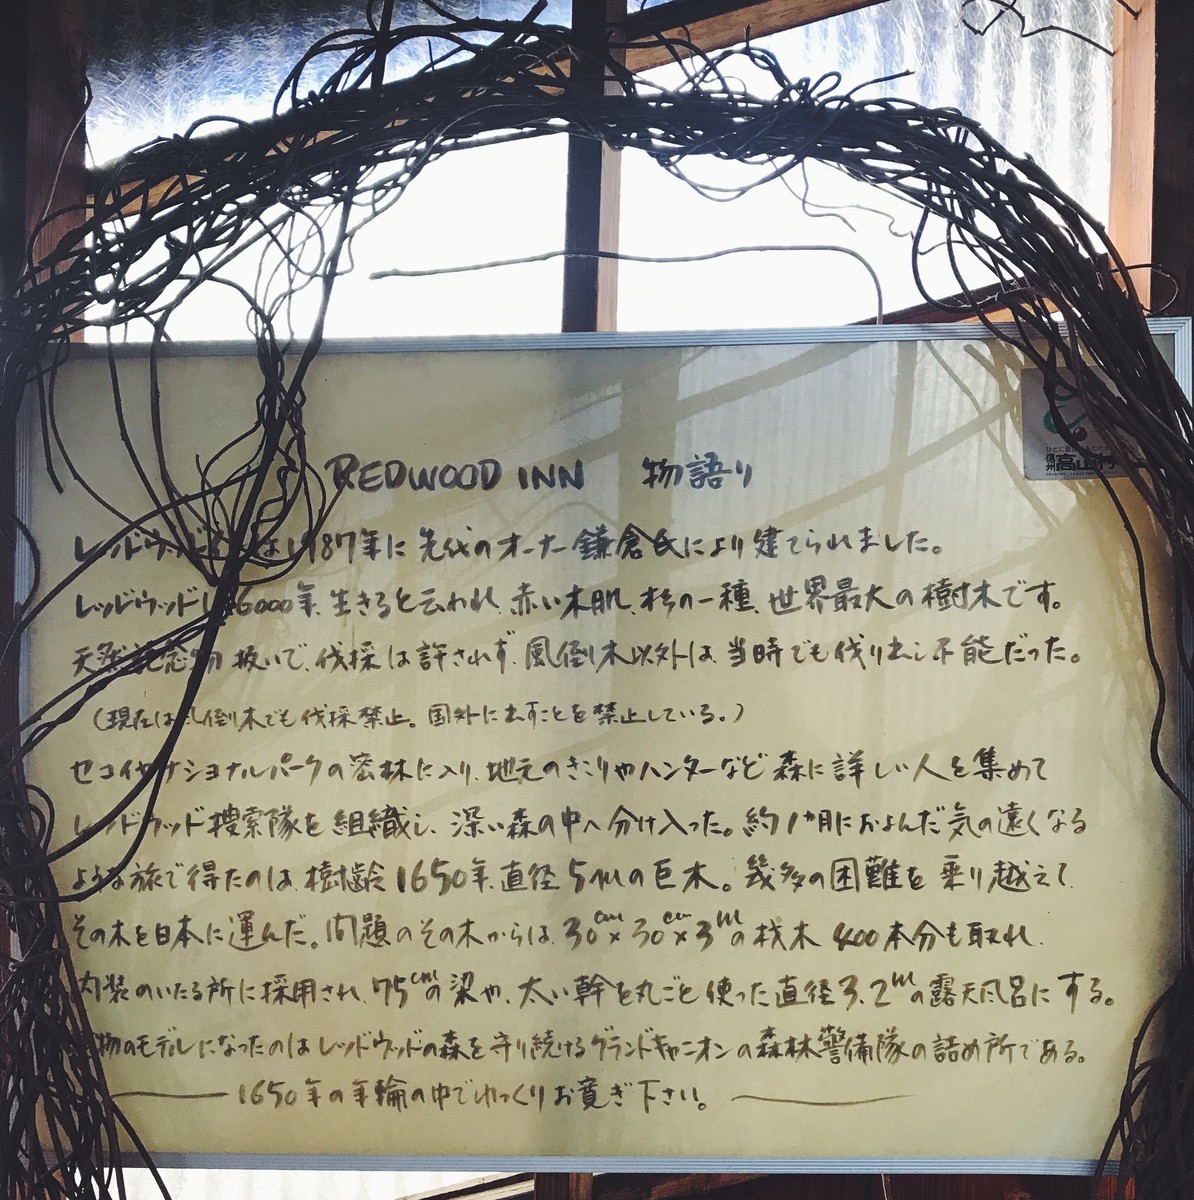 信州高山村
REDWOOD INN 物語り
レッドウッドインは1987年に先代のオーナー鎌倉氏により建てられました。
レッドウッドは6000年、生きると云われ、赤い木肌、杉の一種、世界最大の樹木です。
天然記念物扱いで、伐採は許されず、風倒木以外は、当時でも伐り出し不能だった。
(現在は風倒木でも伐採禁止。国外に出すことを禁止している。)
セコイヤナショナルパークの密林に入り、地元のきこりやハンターなど森に詳しい人を集めて
レッドウッド捜索隊を組織し、深い森の中へ分け入った。約1ヶ月におよんだ気の遠くなる
ような旅で得たのは、樹齢1650年、直径5mの巨木。幾多の困難を乗り越えて、
その木を日本に運んだ。問題のその木からは、30cm×30cm×3mの材木400本分も取れ、
内装のいたる所に採用され、75cmの梁や、太い幹を丸ごと使った直径3.2mの露天風呂にする。
物のモデルになったのはレッドウッドの森を守り続けるグランドキャニオンの森林警備隊の詰め所である。
1650年の年輪の中でゆっくりお寛ぎ下さい。